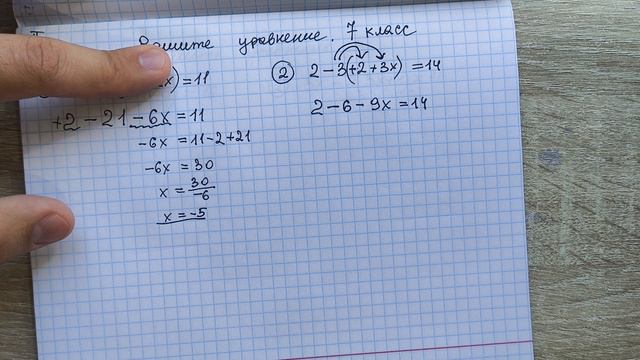 Решите уравнение. 7 класс
x) = 11
+2 - 21 - 6x = 11
-6x = 11 - 2 + 21
-6x = 30
x = 30/-6
x = -5
② 2 - 3(+2 + 3x) = 14
2 - 6 - 9x = 14